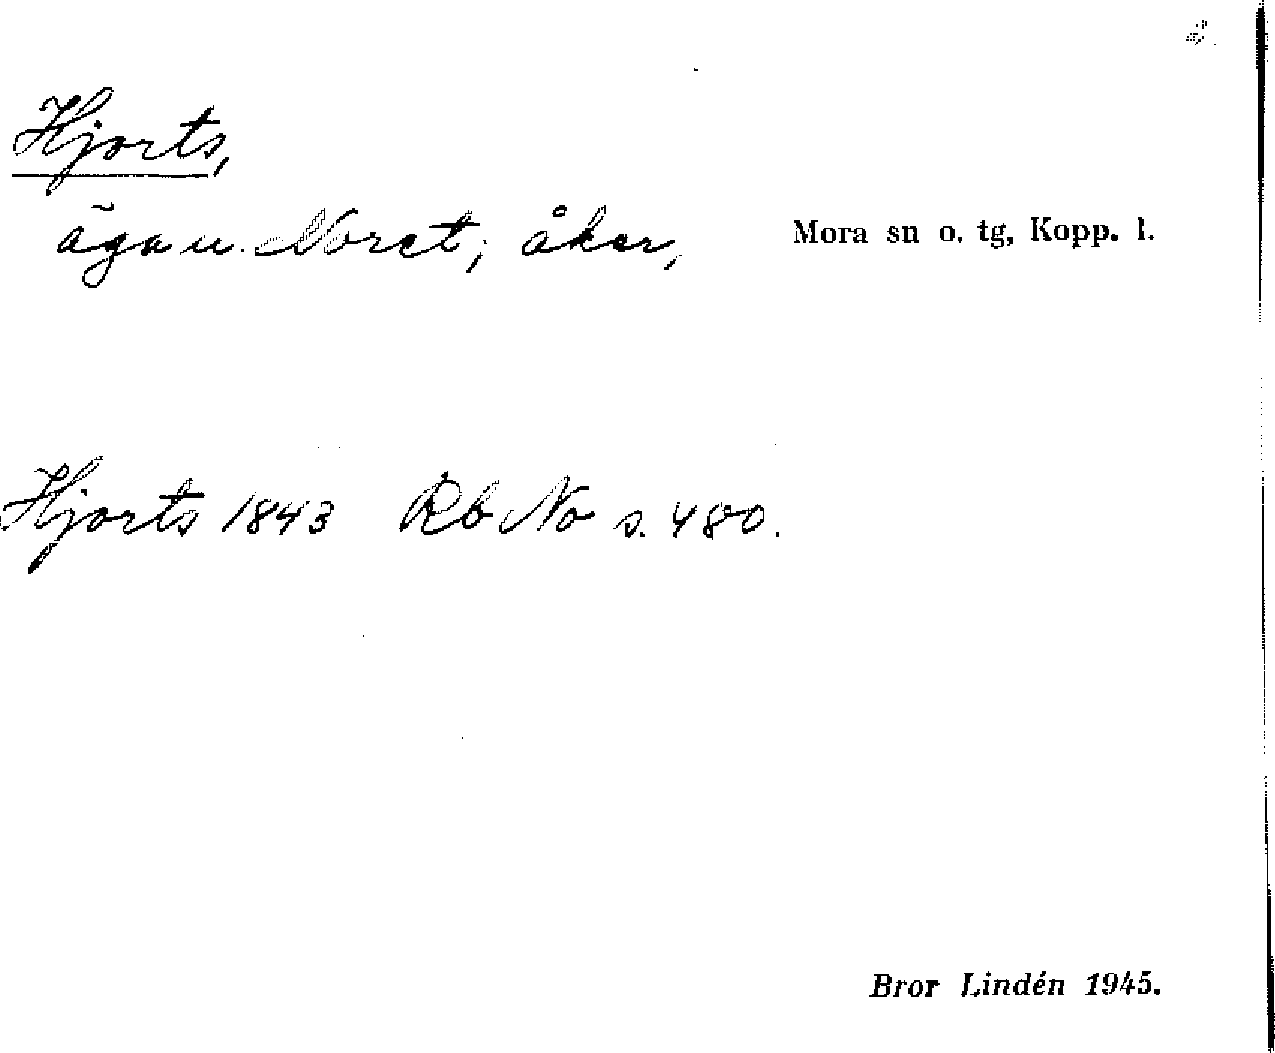 Hjorts,
äga u. Noret; åker, Mora sn o. tg, Kopp. l.
Hjorts 1843 Rb No s. 480.
Bror Lindén 1945.